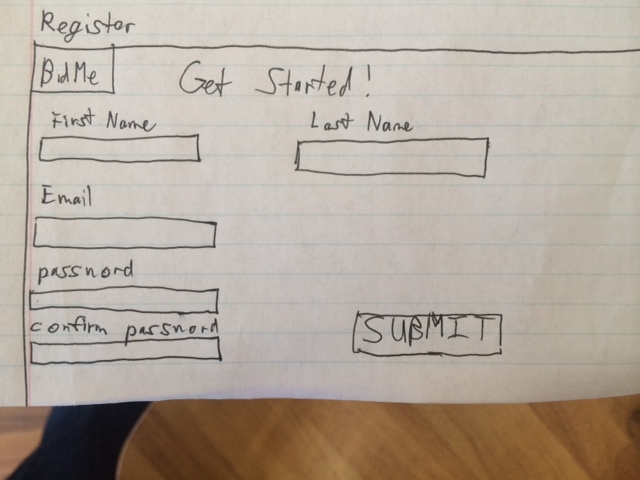 Register
BidMe Get Started!
First Name Last Name
Email
password
confirm password
SUBMIT